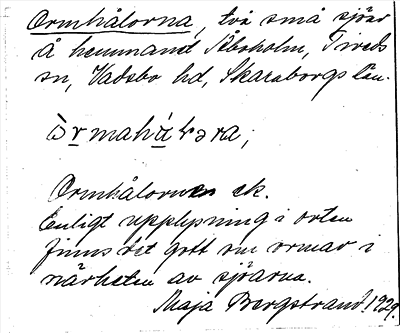 Ormhålorna, två små sjöar
å hemmanet Åboholm, Tiveds
sn, Vadsbo hd, Skaraborgs län.
Ormhålorna ek.
Enligt upplysning i orten
finns det gott om ormar i
närheten av sjöarna.
Maja Bergstrand. 1929.